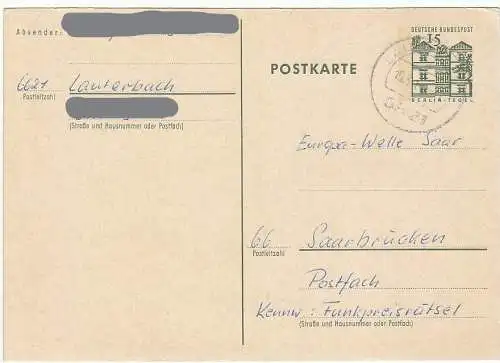 Absender:
6621 Lauterbach
Postleitzahl
(Straße und Hausnummer oder Postfach)
POSTKARTE
DEUTSCHE BUNDESPOST
15
BERLIN-TEGEL
Europa-Welle Saar
66 Saarbrücken
Postleitzahl
Postfach
Kennw.: Funkpreisrätsel
(Straße und Hausnummer oder Postfach)